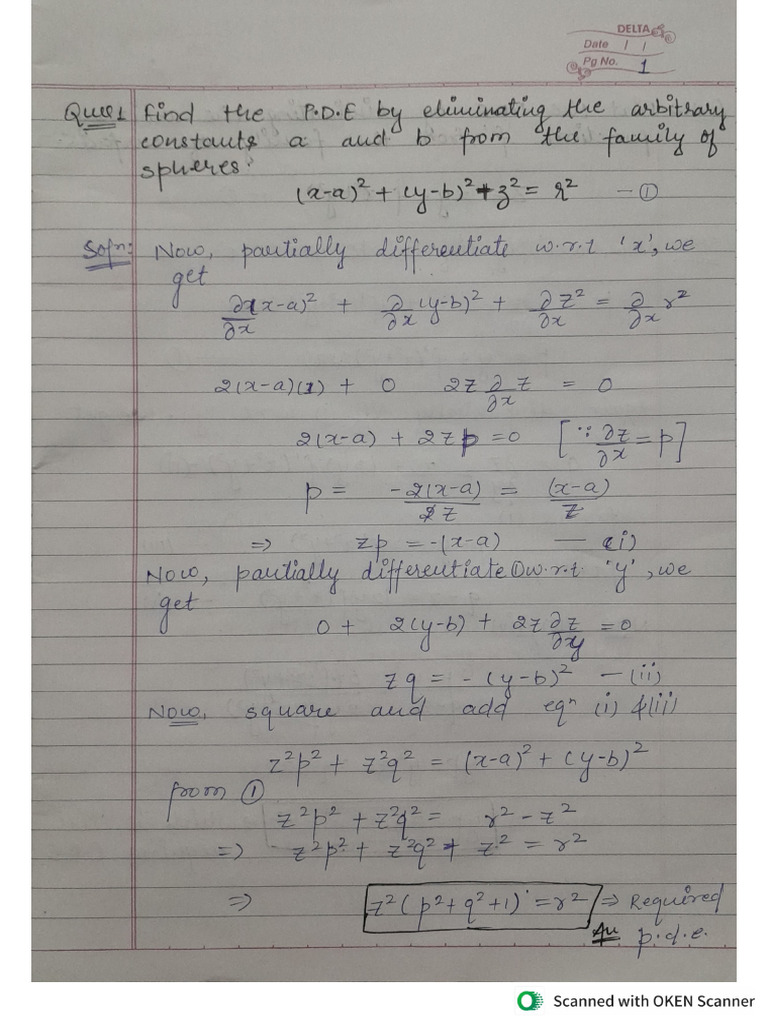 DELTA
Date / /
Pg No. 1
Ques 1 Find the P.D.E by eliminating the arbitrary
constants a and b from the family of
spheres.
(x-a)² + (y-b)² + z² = r² — ①
Soln: Now, partially differentiate w.r.t 'x', we
get
∂/∂x (x-a)² + ∂/∂x (y-b)² + ∂/∂x z² = ∂/∂x r²
2(x-a)(1) + 0 2z ∂/∂x z = 0
2(x-a) + 2zp = 0 [∵ ∂z/∂x = p]
p = -2(x-a)/2z = (x-a)/z
⇒ zp = -(x-a) — (i)
Now, partially differentiate ① w.r.t. 'y', we
get
0 + 2(y-b) + 2z ∂z/∂y = 0
zq = -(y-b)² — (ii)
Now, square and add eqⁿ (i) & (ii)
z²p² + z²q² = (x-a)² + (y-b)²
from ①
z²p² + z²q² = r² - z²
⇒ z²p² + z²q² + z² = r²
⇒ z²(p² + q² + 1) = r² ⇒ Required
Ans p.d.e.
Scanned with OKEN Scanner